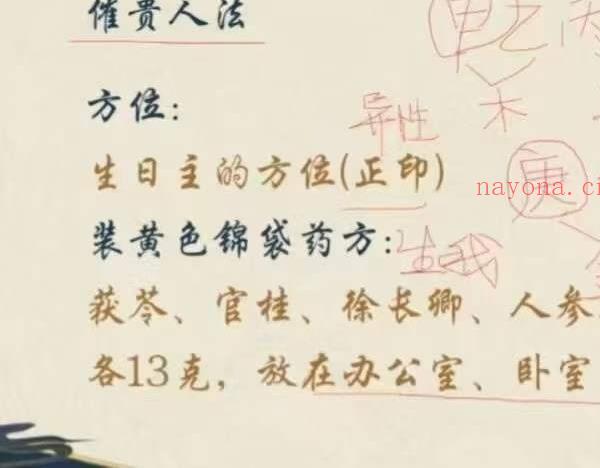 催贵人法
甲乙
木
方位：
异性
生日主的方位(正印)
庚
nayona.c
装黄色锦袋药方：
生我
茯苓、官桂、徐长卿、人参
各13克，放在办公室、卧室